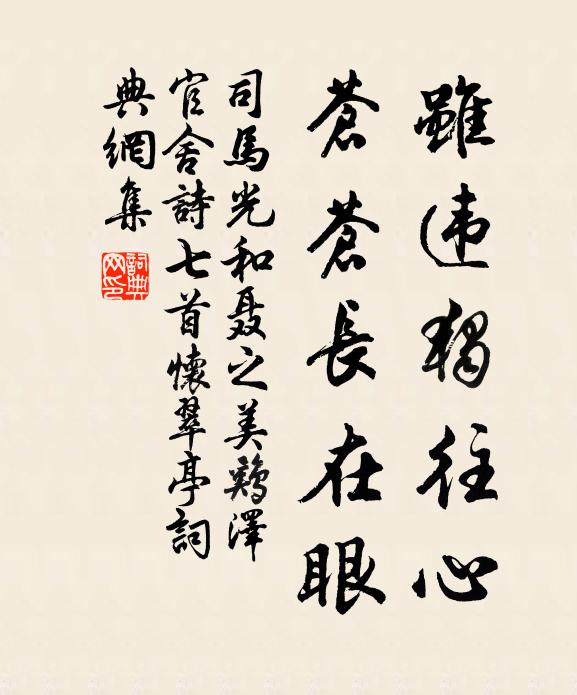 雖违獨往心
蒼蒼長在眼
司馬光和聂之美鷄澤
官舍詩七首懷翠亭詞
典網集
詞典
网印